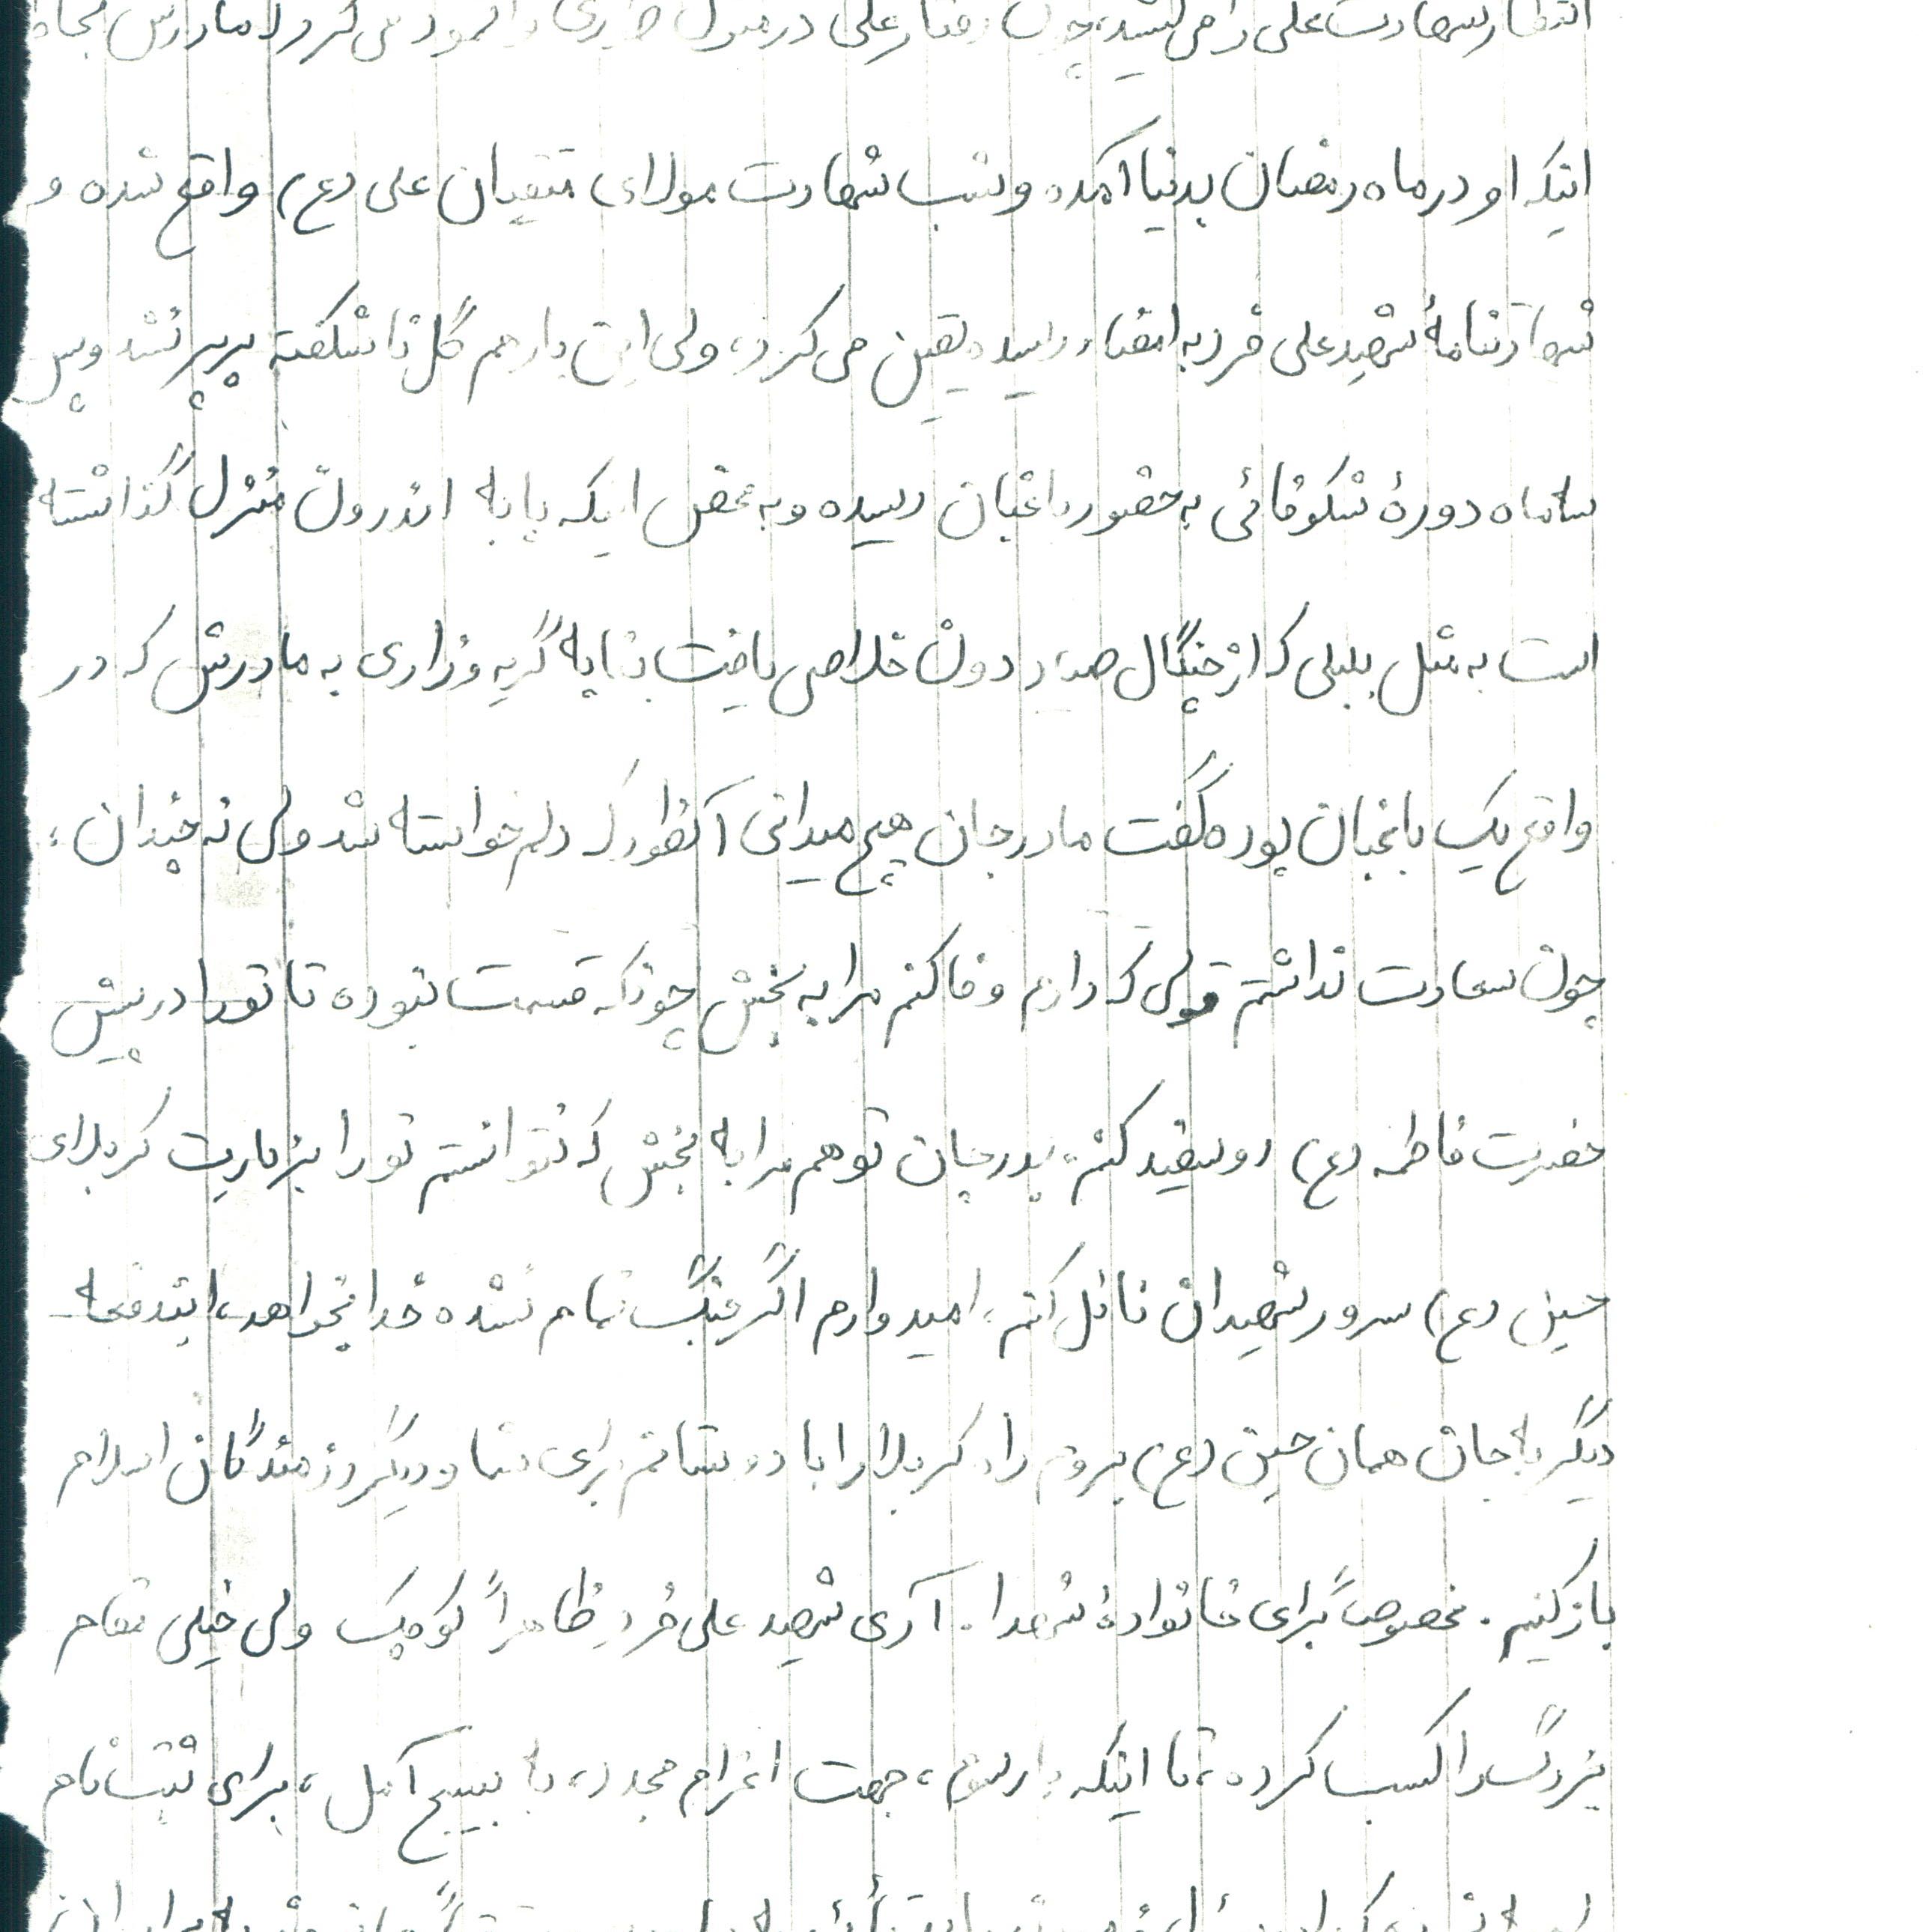 انتظار شهادت علی را می کشید، چون رفتار علی در منزل طوری وانمود می کرد
اینکه او در ماه رمضان بدنیا آمده و شب شهادت مولای متقیان علی (ع) واقع شده و
شهادتنامهٔ شهید علی فرد به امضاء رسیده یقین می کرد، ولی این بار هم گل ناشکفته پرپر نشد و پس
سه ماه دورهٔ شکوفائی به حضور باغبان رسیده و به محض اینکه پا به اندرون منزل گذاشته
است به مثل بلبلی که از چنگال صیاد دون خلاصی یافت بنا به گریه و زاری به مادرش که در
واقع یک باغبان بوده گفت مادر جان هیچ میدانی آنطور که دلم خواسته شد ولی نه چندان ؛
چون سعادت نداشتم قولی که دارم وفا کنم مرا به بخش چونکه قسمت نبوده تا تو را در پیش
حضرت فاطمه (ع) روسفید کنم، پدر جان تو هم مرا به بخش که نتوانستم تو را بزیارت کربلای
حسین (ع) سرور شهیدان نائل کنم، امیدوارم اگر جنگ تمام نشده خدا بخواهد، ایندفعه
دیگر به جان همان حسین (ع) بروم راه کربلا را با دوستانم برای شما و دیگر رزمندگان اسلام
باز کنیم. مخصوصاً برای خانوادهٔ شهدا. آری شهید علی فرد ظاهراً کوچک ولی خیلی مقام
بزرگ را کسب کرده، تا اینکه بار سوم، جهت اعزام مجدد، با بسیج آمل، برای ثبت نام